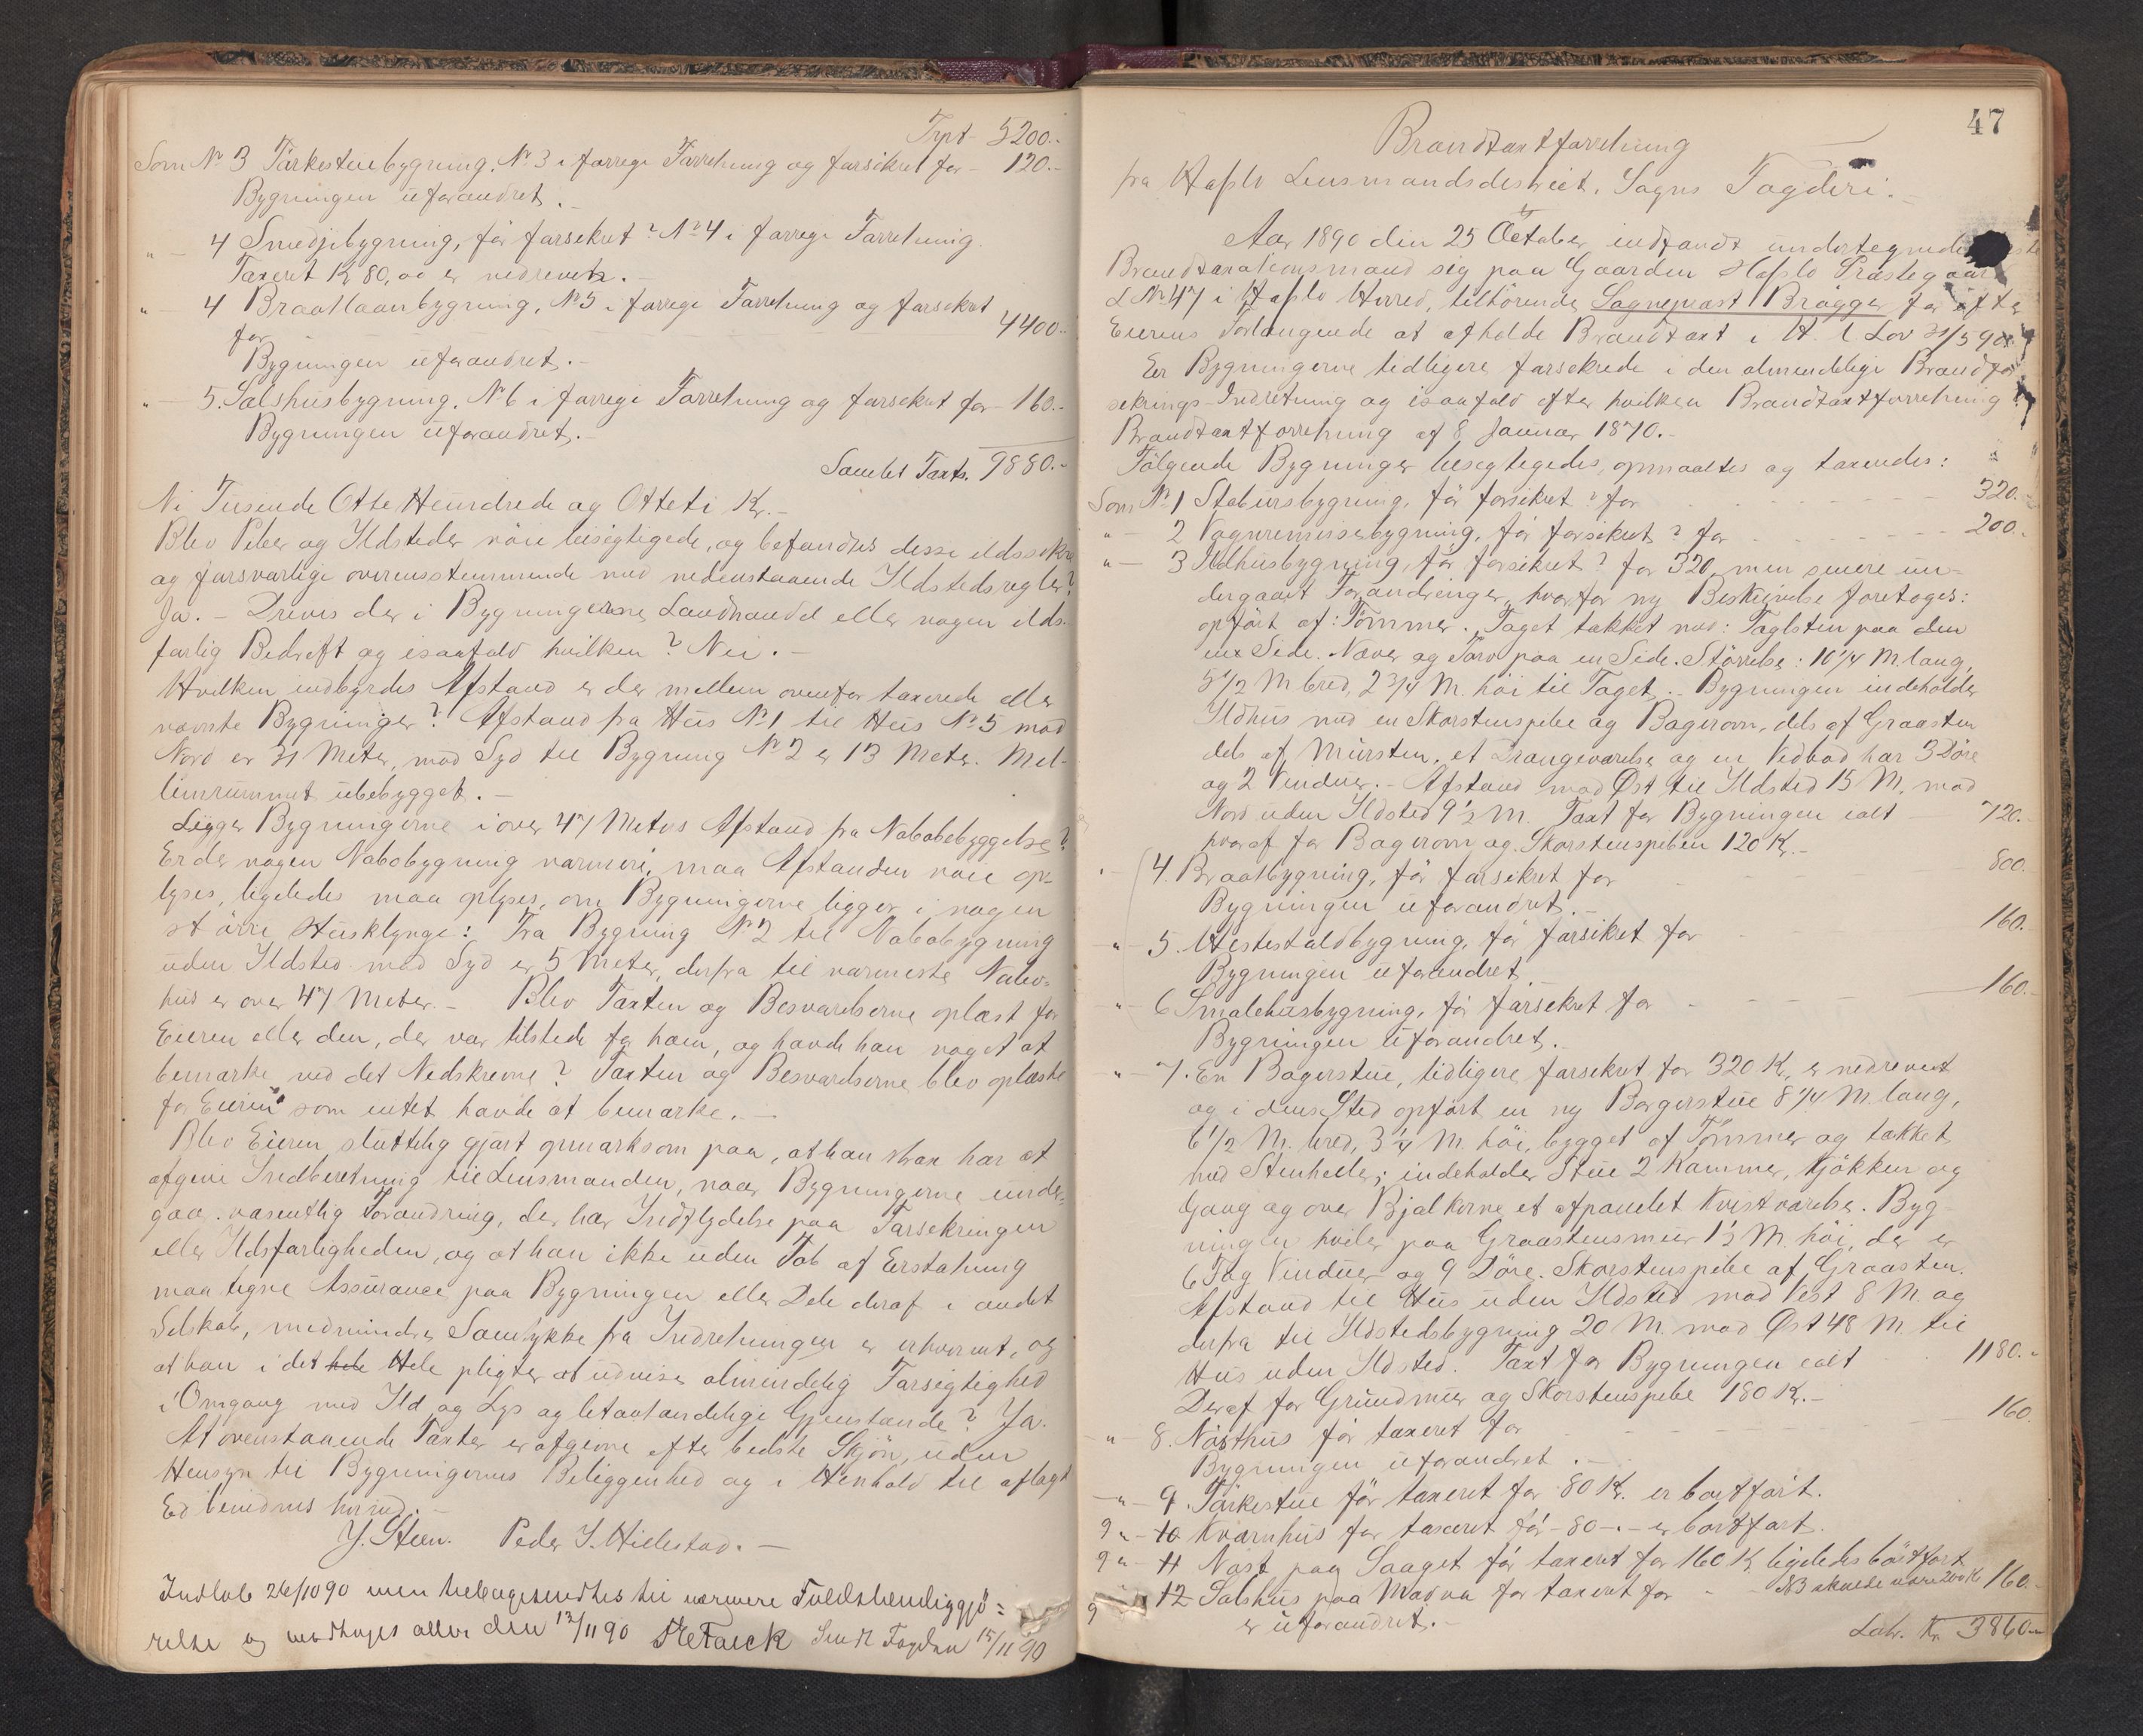 Trpt 5200.-
Som No 3 Tørkestuebygning. No 3 i forrige Forretning og forsikret for - 120.-
Bygningen uforandret.
" - 4 Smedjebygning, før forsekret? No 4 i forrige Forretning.
Taxeret K 80,00 er nedrevet.-
" - 4 Braatlaanbygning, No 5 i forrige Forretning og forsekret
for 4400.-
Bygningen uforandret.-
" - 5. Salshusbygning. No 6 i forrige Forretning og forsekret for - 160.-
Bygningen uforandret.-
Samlet Taxt. 9880.-
Ni Tusende Otte Hundrede og Otteti Kr.-
Blev Piber og Ildsteder nøie besigtigede, og befandtes disse ildssikre
og forsvarlige overensstemmende med nedenstaaende Ildstedsregler?
Ja. - Drives der i Bygningerne Landhandel eller nogen ilds-
farlig Bedrift og isaafald hvilken? Nei.-
Hvilken indbyrdes Afstand er der mellem ovenfor taxerede eller
nævnte Bygninger? Afstand fra Hus No 1 til Hus No 5 mod
Nord er 31 Meter, mod Syd til Bygning No 2 er 13 Meter. Mel-
lemrummet ubebygget.-
Ligger Bygningerne i over 47 Meters Afstand fra Nabobebyggelse?
Er der nogen Nabobygning nærmere, maa Afstanden nøie op-
lyses, ligeledes maa oplyses, om Bygningerne ligger i nogen
større Husklynge: Fra Bygning No 2 til Nabobygning
uden Ildsted mod Syd er 5 Meter, derfra til nærmeste Nabo-
hus er over 47 Meter.- Blev Taxten og Besvarelserne oplæst for
Eieren eller den, der var tilstede for ham, og havde han noget at
bemærke ved det Nedskrevne? Taxten og Besvarelserne blev oplæste
for Eieren som intet havde at bemærke.-
Blev Eieren sluttelig gjort opmærksom paa, at han strax har at
afgive Indberetning til Lensmanden, naar Bygningerne under-
gaa væsentlig Forandring, der har Indflydelse paa Forsekringen
eller Ildsfarligheden, og at han ikke uden Tab af Erstatning
maa tegne Assurance paa Bygningen eller Dele deraf i andet
Selskab, medmindre Samtykke fra Indretningen er erhvervet, og
at han i det hele Hele pligter at udvise almindelig Forsigtighed
i Omgang med Ild og Lys og letantændelige Gjenstande? Ja.
At ovenstaaende Taxter er afgivne efter bedste Skjøn, uden
Hensyn til Bygningernes Beliggenhed og i Henhold til aflagt
Ed bevidnes herved.-
J. Steen. Peder J. Hillestad.-
Indlob 26/10 90 men tilbagesendtes til nærmere Fuldstændiggjø=
relse og modtoges atter den 12/11 90 Sendt Fogden 15/11 90
47
Brandtaxtforretning
fra Hafslo Lensmandsdestrict, Sogns Fogderi.
Aar 1890 den 25 October indfandt undertegnede
Brandtaxationsmænd sig paa Gaarden Hafslo Præstegaard
L No 47 i Hafslo Herred, tilhørende Sognepræst Brøgger for efter
Eierens Forlangende at afholde Brandtaxt i H. t Lov 31/5 90.
Er Bygningerne tidligere forsekrede i den almindelige Brandfor
sekrings-Indretning og isaafald efter hvilken Brandtaxtforretning?
Brandtaxtforretning af 8 Januar 1870.-
Følgende Bygninger besigtigedes, opmaaltes og taxeredes:
Som No 1 Stabursbygning, før forsikret? for 320.-
" - 2 Vognremissebygning, før forsikret? for 200.-
" - 3 Ildhusbygning, før forsikret? for 320, men senere un-
dergaaet Forandringer, hvorfor ny Beskrivelse foretoges:
opført af: Tømmer. Taget tækket med: Taglsten paa den
ene Side. Næver og Torv paa en Side. Størrelse: 10 1/4 M. lang,
5 1/2 M bred, 2 3/4 M. høi til Taget.- Bygningen indeholder
Ildhus med en Skorstenspibe og Bagerovn, dels af Graasten
dels af Mursten, et Drangeværelse og en Vedbod har 3 Døre
og 2 Vinduer.- Afstand mod Øst til Ildsted 15 M, mod
Nord uden Ildsted 9 1/2 M. Taxt for Bygningen ialt - 720.-
hvoraf for Bagerovn og Skorstenspiben 120 K.-
" - 4. Braatbygning, før forsikret for 800.-
Bygningen uforandret.-
" - 5. Hestestaldbygning, før forsikret for 160.-
Bygningen uforandret.
" - 6 Smalehusbygning, før forsekret for 160.-
Bygningen uforandret.
" - 7. En Bagerstue, tidligere forsekret for 320 K, er nedrevet
og i dens Sted opført en ny Borgerstue 8 1/4 M. lang,
6 1/2 M. bred, 3 1/4 M. høi, bygget af Tømmer og tækket
med Stenheller; indeholder Stue 2 Kammer, Kjøkken og
Gang og over Bjælkerne et afpanelet Kvistværelse. Byg-
ningen hviler paa Graastensmur 1 1/2 M. høi, der er
6 Fag Vinduer og 9 Døre. Skorstenspibe af Graasten.
Afstand til Hus uden Ildsted mod Vest 8 M. og
derfra til Ildstedsbygning 20 M. mod Øst 48 M. til
Hus uden Ildsted. Taxt for Bygningen ialt 1180.-
Deraf for Grundmur og Skorstenspibe 180 K.-
" - 8. Nøsthus før taxeret for 160.
Bygningen uforandret.-
" - 9. Tørkestue før taxeret for 80 K. er bortført.
9 " - 10 Kværnhus før taxeret for - 80 - er bortført.
9 " - 11 Nøst paa Saaget før taxeret for 160 K, ligeledes bortført
9 12 Salshus paa Marva før taxeret for - - No 3 skulde være 200 K 160.-
er uforandret.-
Lahr. Kr. 3860.-